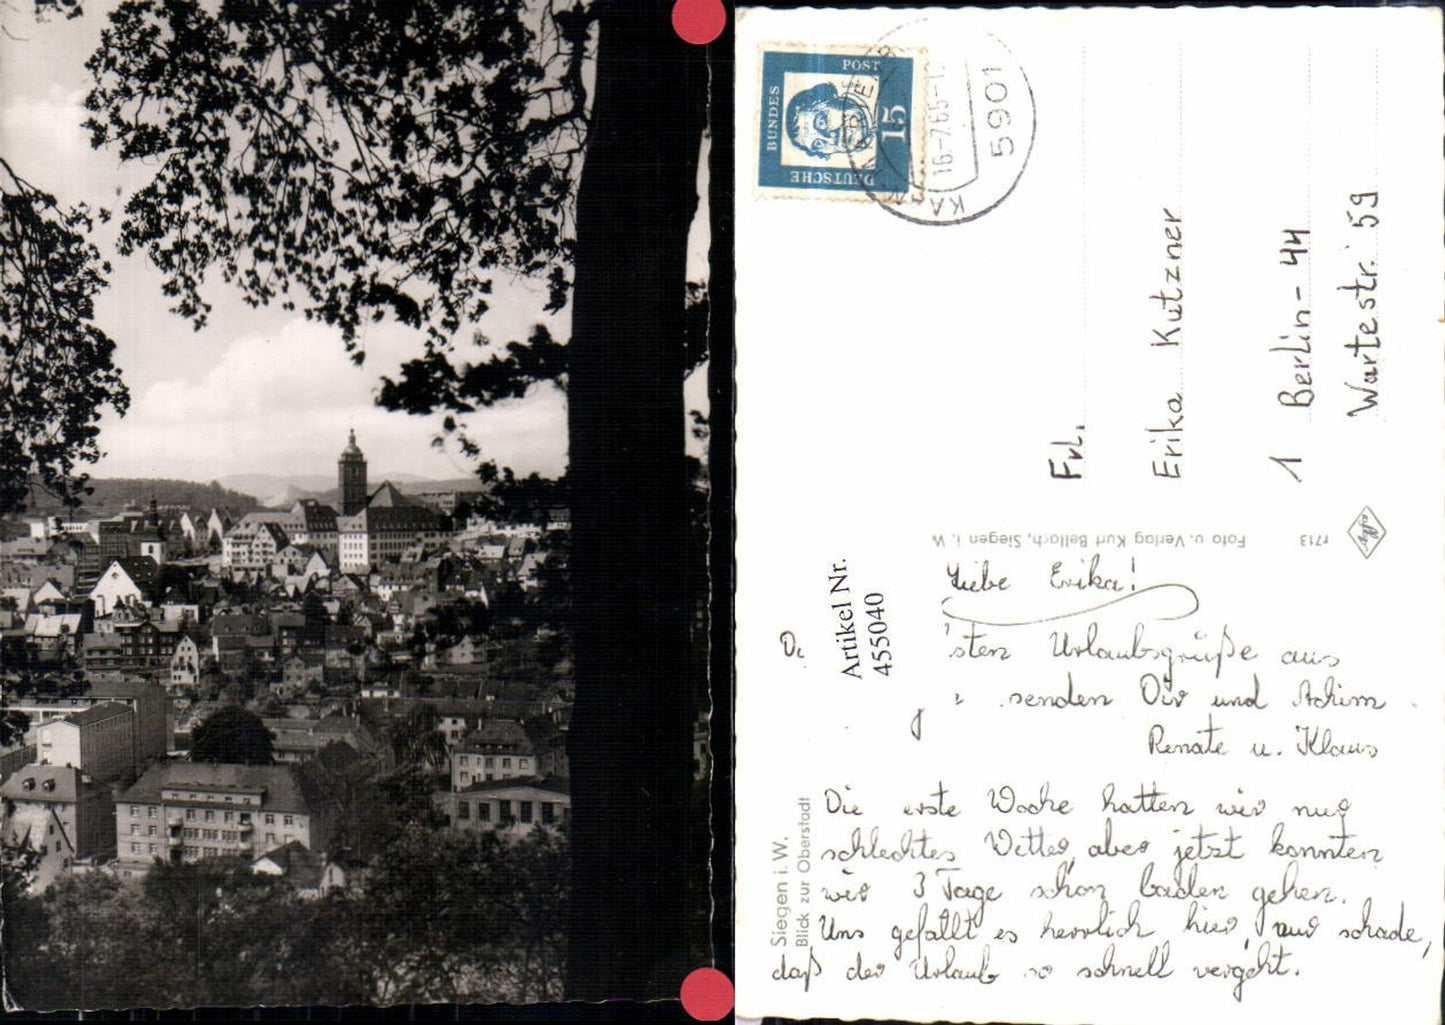 DEUTSCHE
BUNDES
POST
15
16.-7.65-1
5901
Frl.
Erika Kutzner
1 Berlin-44
Wartestr. 59
Foto u. Verlag Kurt Bellach, Siegen i. W.
r713
Artikel Nr.
455040
Liebe Erika!
sten Urlaubsgrüße aus
senden Dir und Achim
Renate u. Klaus
Die erste Woche hatten wir nur
schlechtes Wetter, aber jetzt konnten
wir 3 Tage schon baden gehen.
Uns gefällt es herrlich hier, nur schade,
daß der Urlaub so schnell vergeht.
Siegen i. W.
Blick zur Oberstadt